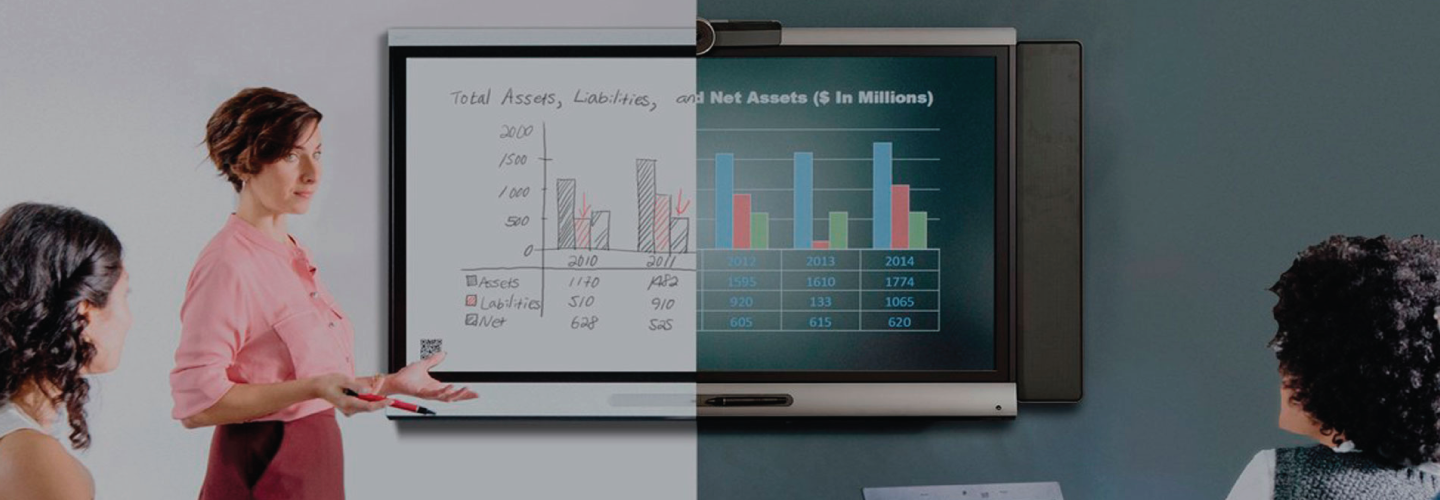 Total Assets, Liabilities, and Net Assets ($ In Millions)
2000
1500
1000
500
0
2010 2011 2012 2013 2014
Assets 1170 1482 1595 1610 1774
Labilities 510 910 920 133 1065
Net 628 525 605 615 620